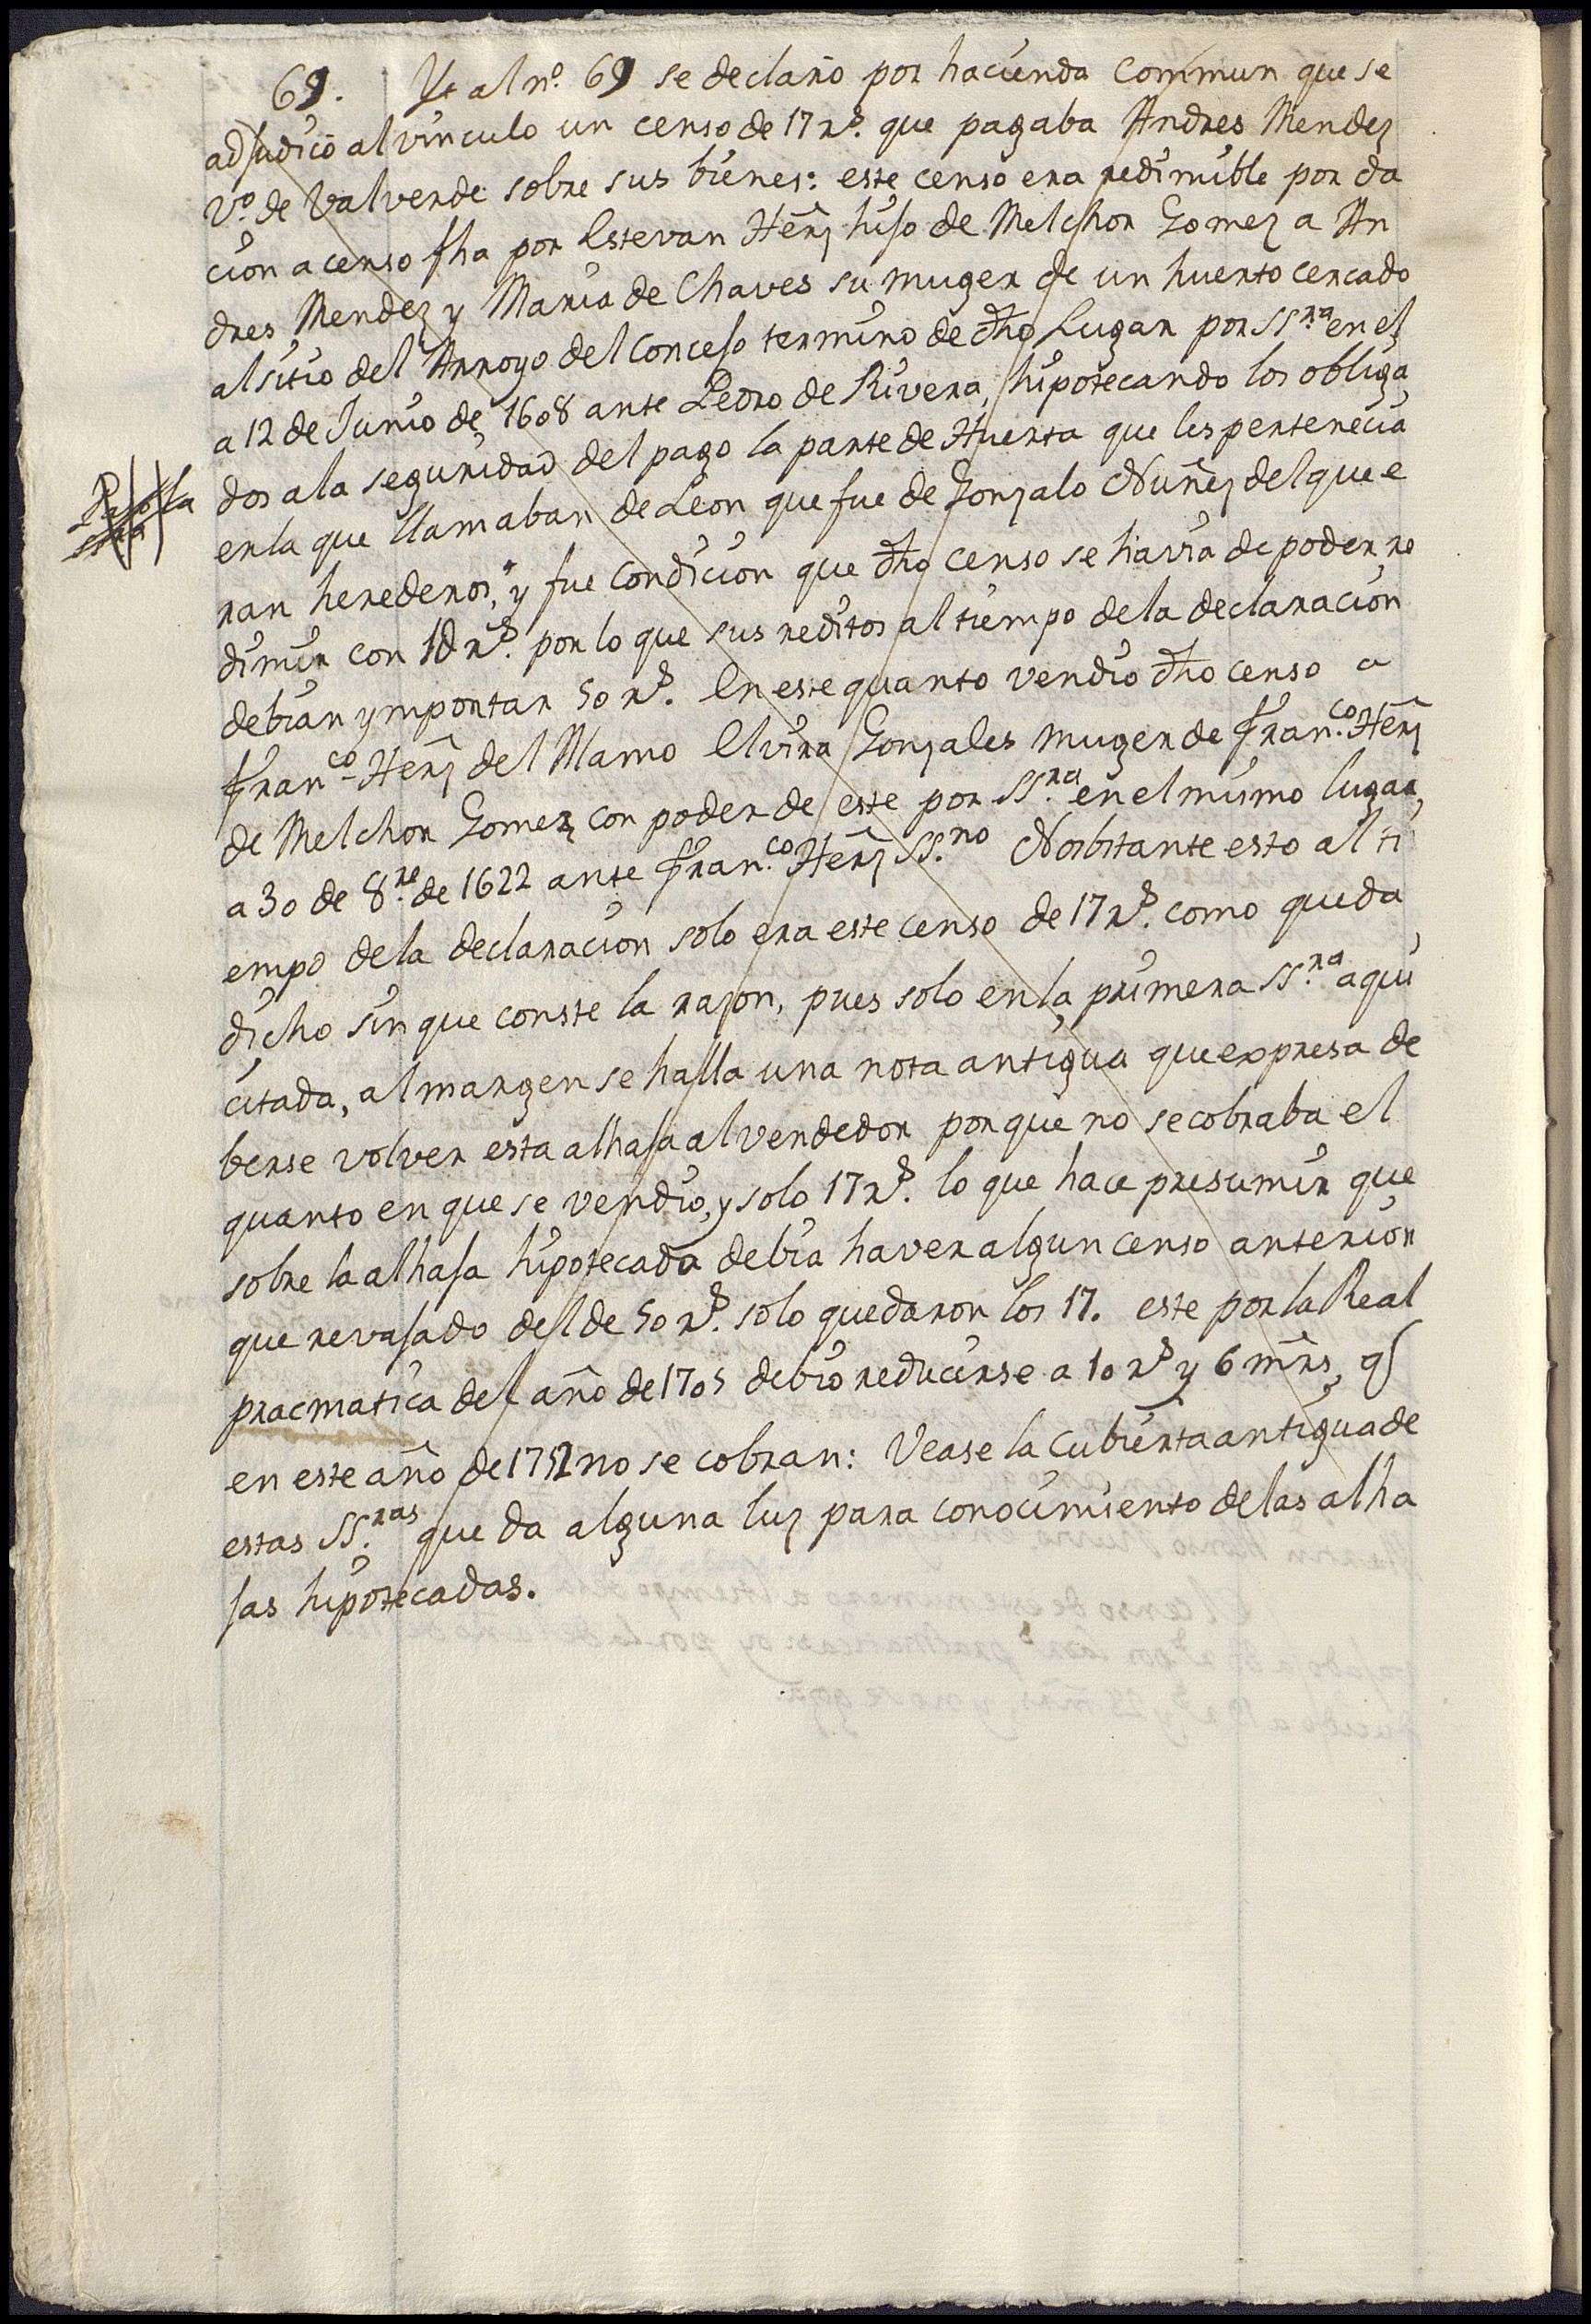 69. Yt al nº. 69 se declaro por hacienda commun que se
adjudicó al vinculo un censo de 17 rs. que pagaba Andres Mendez
vº. de Valverde sobre sus bienes: este censo era redimible por da
cion a censo fha por Estevan Hern̄z hijo de Melchor Gomez a An
dres Mendez y Maria de Chaves su muger de un huerto cercado
al sitio del Arroyo del Concejo termino de dho Lugar por SS.ra en el
a 12 de Junio de 1608 ante Pedro de Rivera, hipotecando los obliga
dos a la seguridad del pago la parte de Huerta que les pertenecia
en la que llamaban de Leon que fue de Gonzalo Nuñez del que e
ran herederos, y fue condicion que dho censo se havia de poder re
dimir con 1000 rs. por lo que sus reditos al tiempo de la declaracion
debian ymportar 50 rs. En este quanto vendio dho censo a
Fran.co Hern̄z del Mamo Elvira Gonzales muger de Fran.co Hern̄z
de Melchor Gomez con poder de este por SS.ra en el mismo lugar
a 30 de 8.re de 1622 ante Fran.co Hern̄z SS.no Nobstante esto al ti
empo de la declaracion solo era este censo de 17 rs. como queda
dicho sin que conste la razon, pues solo en la primera SS.ra aqui
citada, al margen se halla una nota antigua que expresa de
berse volver esta alhaja al vendedor porque no se cobraba el
quanto en que se vendio, y solo 17 rs. lo que hace presumir que
sobre la alhaja hipotecada debia haver algun censo anterior
que revajado del de 50 rs. solo quedaron los 17. este por la Real
pracmatica del año de 1705 debio reducirse a 10 rs. y 6 mrs, q
en este año de 1752 no se cobran: Vease la cubierta antigua de
estas SS.ras que da alguna luz para conocimiento de las alha
jas hipotecadas.